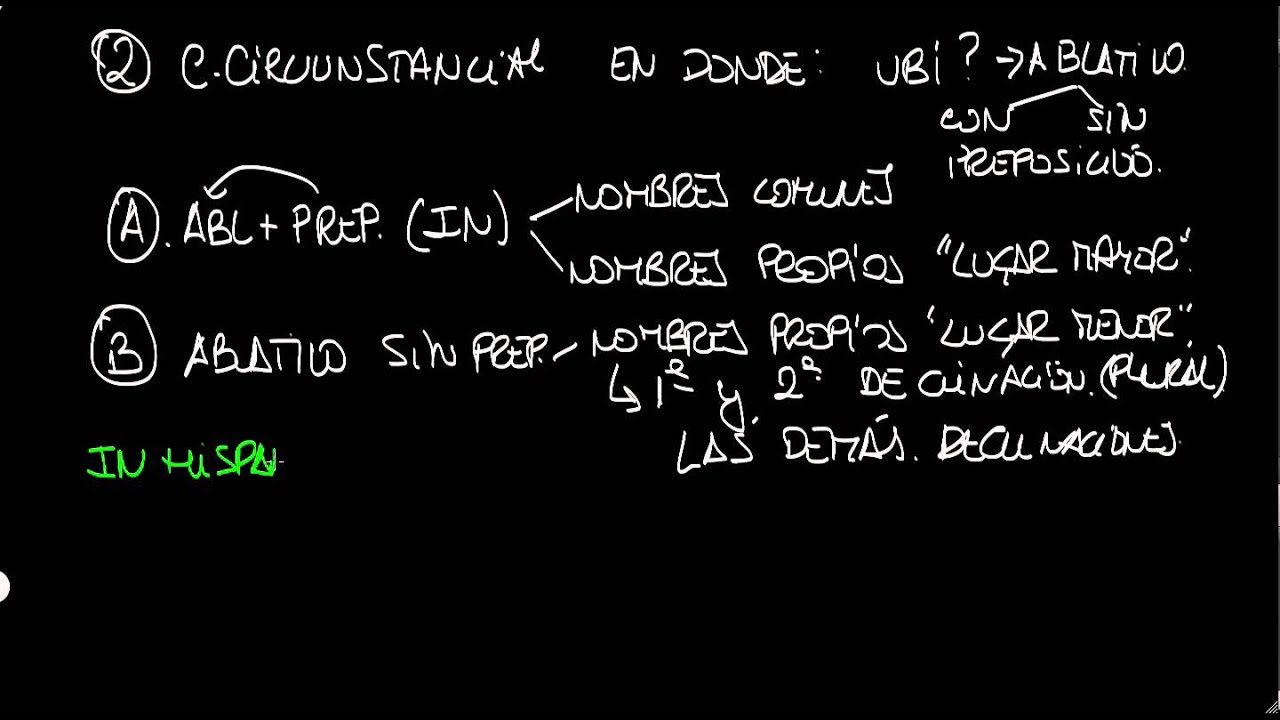 2 C.CIRCUNSTANCIAL EN DONDE: UBI? → ABLATIVO.
CON SIN
PREPOSICIÓ.
A. ABL + PREP. (IN) NOMBRES COMUNES
NOMBRES PROPIOS "LUGAR MAYOR".
B ABATIVO SIN PREP. NOMBRES PROPIOS "LUGAR MENOR".
↳ 1ª y 2ª DECLINACIÓN. (PLURAL)
LAS DEMÁS. DECLINACIONES.
IN HISPA